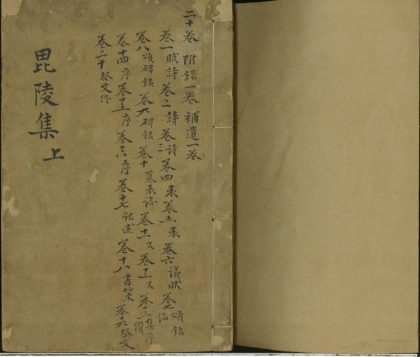 二十卷 附錄一卷 補遺一卷
卷一賦詩 卷二詩 卷三詩 卷四表 卷五表 卷六議狀 卷七頌銘論
卷八頌碑銘 卷九碑銘 卷十墓表誌 卷十一 卷十二 卷十三集序
卷十四序 卷十五序 卷十六序 卷十七記述 卷十八書策 卷十九祭文
卷二十祭文
毘陵集上